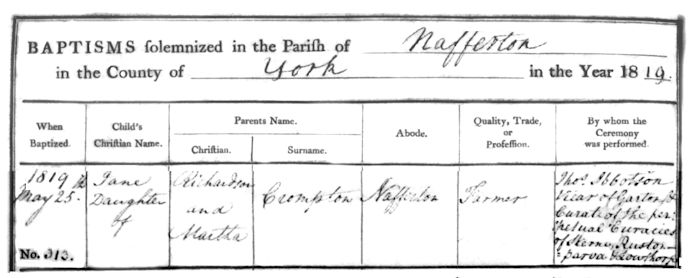 BAPTISMS solemnized in the Parish of Nafferton
in the County of York in the Year 1819.
When Baptized.
Child's Christian Name.
Parents Name.
Christian.
Surname.
Abode.
Quality, Trade, or Profession.
By whom the Ceremony was performed.
1819
May 25th
No. 313.
Jane
Daughter
of
Richardson
and
Martha
Crompton
Nafferton
Farmer
Thos. Ibbotson
Vicar of Garton &
Curate of the per=
petual Curacies
of Skerne, Ruston
parva & Lowthorp